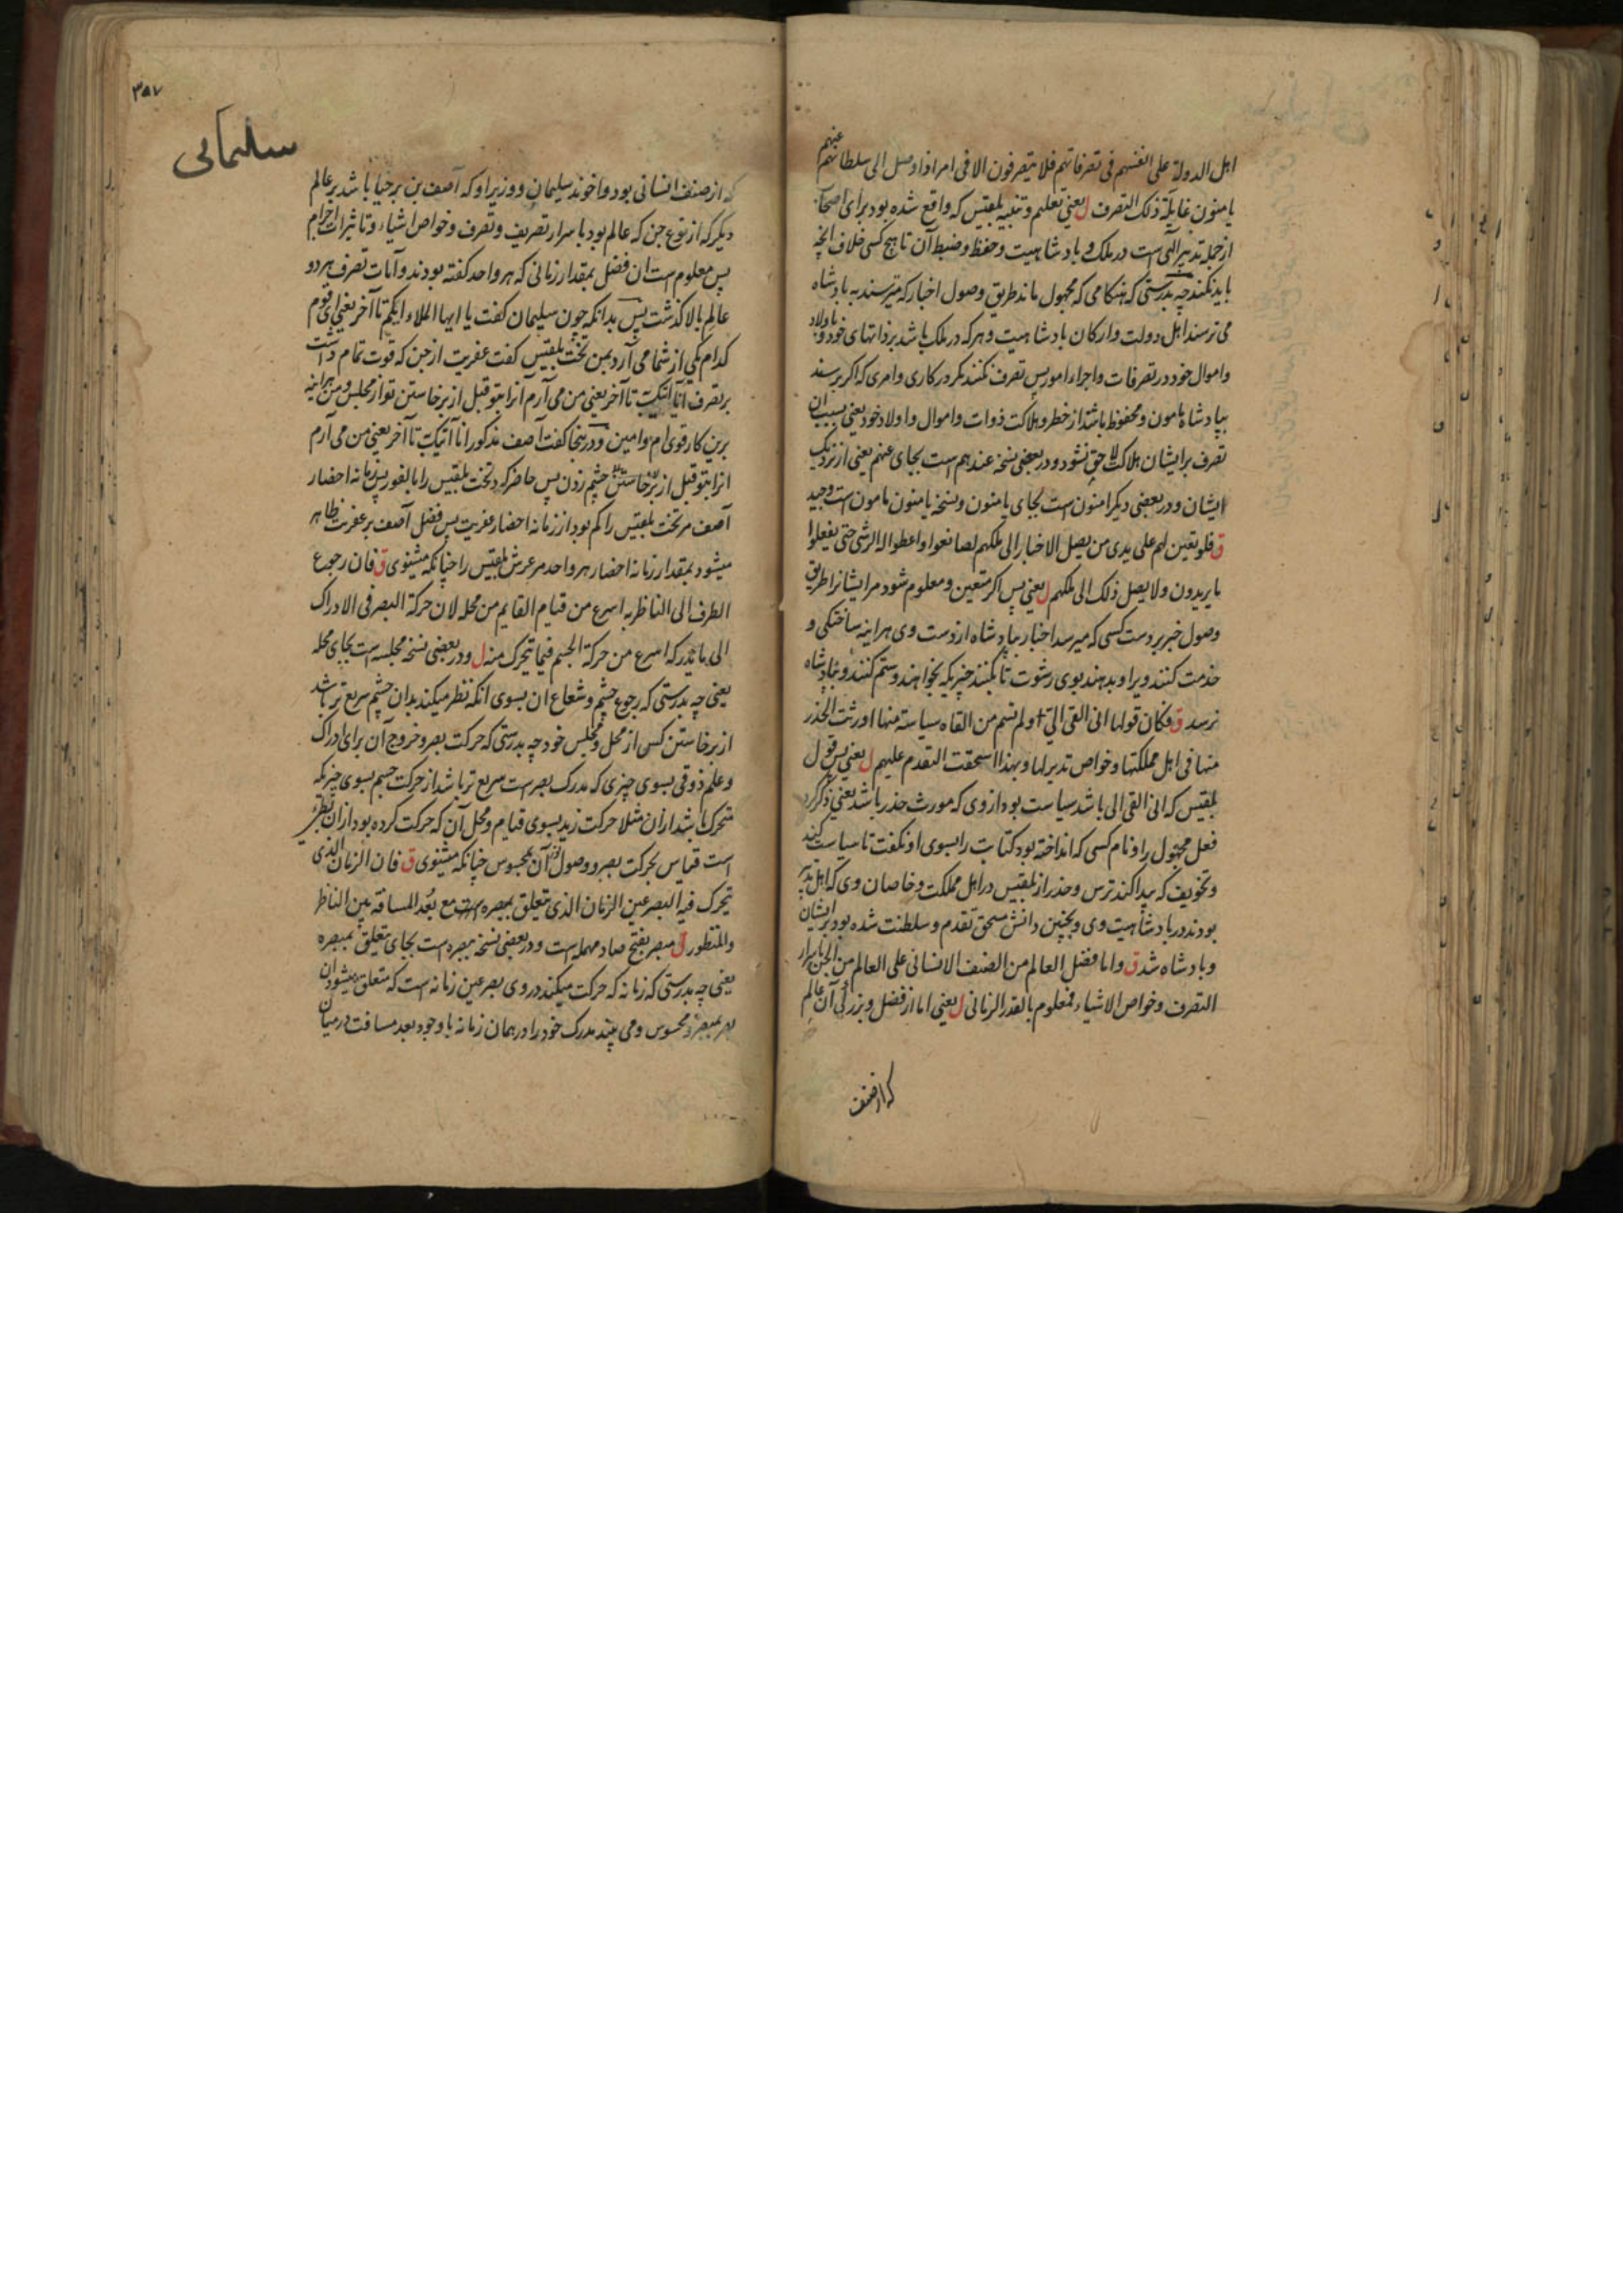 اهل الدولة علی انفسهم فی تصرفاتهم فلا یتصرفون الا فی امر اذا وصل الی سلطانهم عنهم
یامنون غایلة ذلک التصرف ل یعنی تعلیم و تنبیه بلقیس که واقع شده بود برای اصحاب
از جمله تدبیر الهی است در ملک و بادشاهیت و حفظ و ضبط آن تا هیچ کسی خلاف انچه
باید نکند چه بدرستی که هنکامی که مجهول ماند طریق وصول اخبار که میرسند به بادشاه
می ترسند اهل دولت و ارکان بادشاهیت و هر که در ملک باشد بر ذاتهای خود و باولاد
و اموال خود در تصرفات و اجراء امور پس تصرف نکنند مکر در کاری و امری که اکر برسند
ببادشاه مامون و محفوظ باشند از خطر و هلاکت ذوات و اموال و اولاد خود یعنی بسبب ان
تصرف بر ایشان هلاکت لاحق نشود و در بعضی نسخه عندهم است بجای عنهم یعنی از نزدیک
ایشان و در بعضی دیکر امنون است بجای یامنون و نسخه یامنون مامون است و جید
ق فلو تعین لهم علی یدی من یصل الاخبار الی ملکهم لصانعوا و اعطوا له الرشی حتی یفعلوا
ما یریدون و لا یصل ذلک الی ملکهم ل یعنی پس اکر متعین و معلوم شود مر ایشانرا طریق
وصول خبر بر دست کسی که میرسد اخبار ببادشاه از دست وی هراینه ساختکی و
خدمت کنند ویرا و بدهند بوی رشوت تا بکنند چیزیکه بخواهند و ستم کنند و ببادشاه
نرسد ق فکان قولها انی القی الی و لم تسم من القاه سیاسة منها اورثت الحذر
منها فی اهل مملکتها و خواص تدبیرها و بهذا استحقت التقدم علیهم ل یعنی پس قول
بلقیس که انی القی الی باشد سیاست بود از وی که مورث حذر باشد یعنی ذکر کرد
فعل مجهول را و نام کسی که انداخته بود کتابت را بسوی او نکفت تا سیاست کند
و تخویف که پیدا کند ترس و حذر از بلقیس در اهل مملکت و خاصان وی که اهل تدبیر
بودند در بادشاهیت وی و بچنین دانش مستحق تقدم و سلطنت شده بود بر ایشان
و بادشاه شد ق و اما فضل العالم من الصنف الانسانی علی العالم من الجن باسرار
التصرف و خواص الاشیاء فمعلوم بالقدر الزمانی ل یعنی اما از فضل و بزرکی آن عالم
که از صنف
۳۵۷
سلیمانی
که از صنف انسانی بود و اخوند سلیمان و وزیر او که آصف بن برخیا باشد بر عالم
دیکر که از نوع جن که عالم بود باسرار تصریف و تصرف و خواص اشیاء و تاثیرات اجرام
پس معلوم است ان فضل بمقدار زمانی که هر واحد کفته بودند و آیات تصرف هر دو
عالم بالا کذشت پس بدانکه چون سلیمان کفت یا ایها الملاء ایکم تا آخر یعنی ای قوم
کدام یکی از شما می آرد بمن تخت بلقیس کفت عفریت از جن که قوت تمام داشت
بر تصرف انا آتیک به تا آخر یعنی من می آرم انرا بتو قبل از برخاستن تو از مجلس و من هراینه
برین کار قوی ام و امین و درینجا کفت آصف مذکور انا آتیک به تا آخر یعنی من می آرم
انرا بتو قبل از برخاستن چشم زدن پس حاضر کرد تخت بلقیس را بالفور پس زمانه احضار
آصف مر تخت بلقیس را کم بود از زمانه احضار عفریت پس فضل آصف بر عفریت ظاهر
میشود بمقدار زمانه احضار هر واحد مر عرش بلقیس را چنانکه میشنوی ق فان رجوع
الطرف الی الناظر به اسرع من قیام القایم من محله لان حرکة البصر فی الادراک
الی ما یدرکه اسرع من حرکة الجسم فیما یتحرک منه ل و در بعضی نسخه مجلسه است بجای محله
یعنی چه بدرستی که رجوع چشم و شعاع ان بسوی انکه نظر میکند بدان چشم سریع تر باشد
از برخاستن کسی از محل و مجلس خود چه بدرستی که حرکت بصر و خروج آن برای ادراک
و علم ذوقی بسوی چیزی که مدرک بصر است سریع تر باشد از حرکت جسم بسوی چیزیکه
متحرک باشد از ان مثلا حرکت زید بسوی قیام و محل آن که حرکت کرده بود از ان
است قیاس بحرکت بصر و وصول آن بمحسوس چنانکه میشنوی ق فان الزمان الذی
یتحرک فیه البصر عین الزمان الذی یتعلق بمبصره مع بعد المسافة بین الناظر
و المنظور ل مبصر بفتح صاد مهمله است و در بعضی نسخه مبصره است بجای یتعلق بمبصره
یعنی چه بدرستی که زمانه که حرکت میکند در وی بصر عین زمانه است که متعلق میشود ان
بصر بمبصر و محسوس و می بیند مدرک خود را در همان زمانه با وجود بعد مسافت درمیان